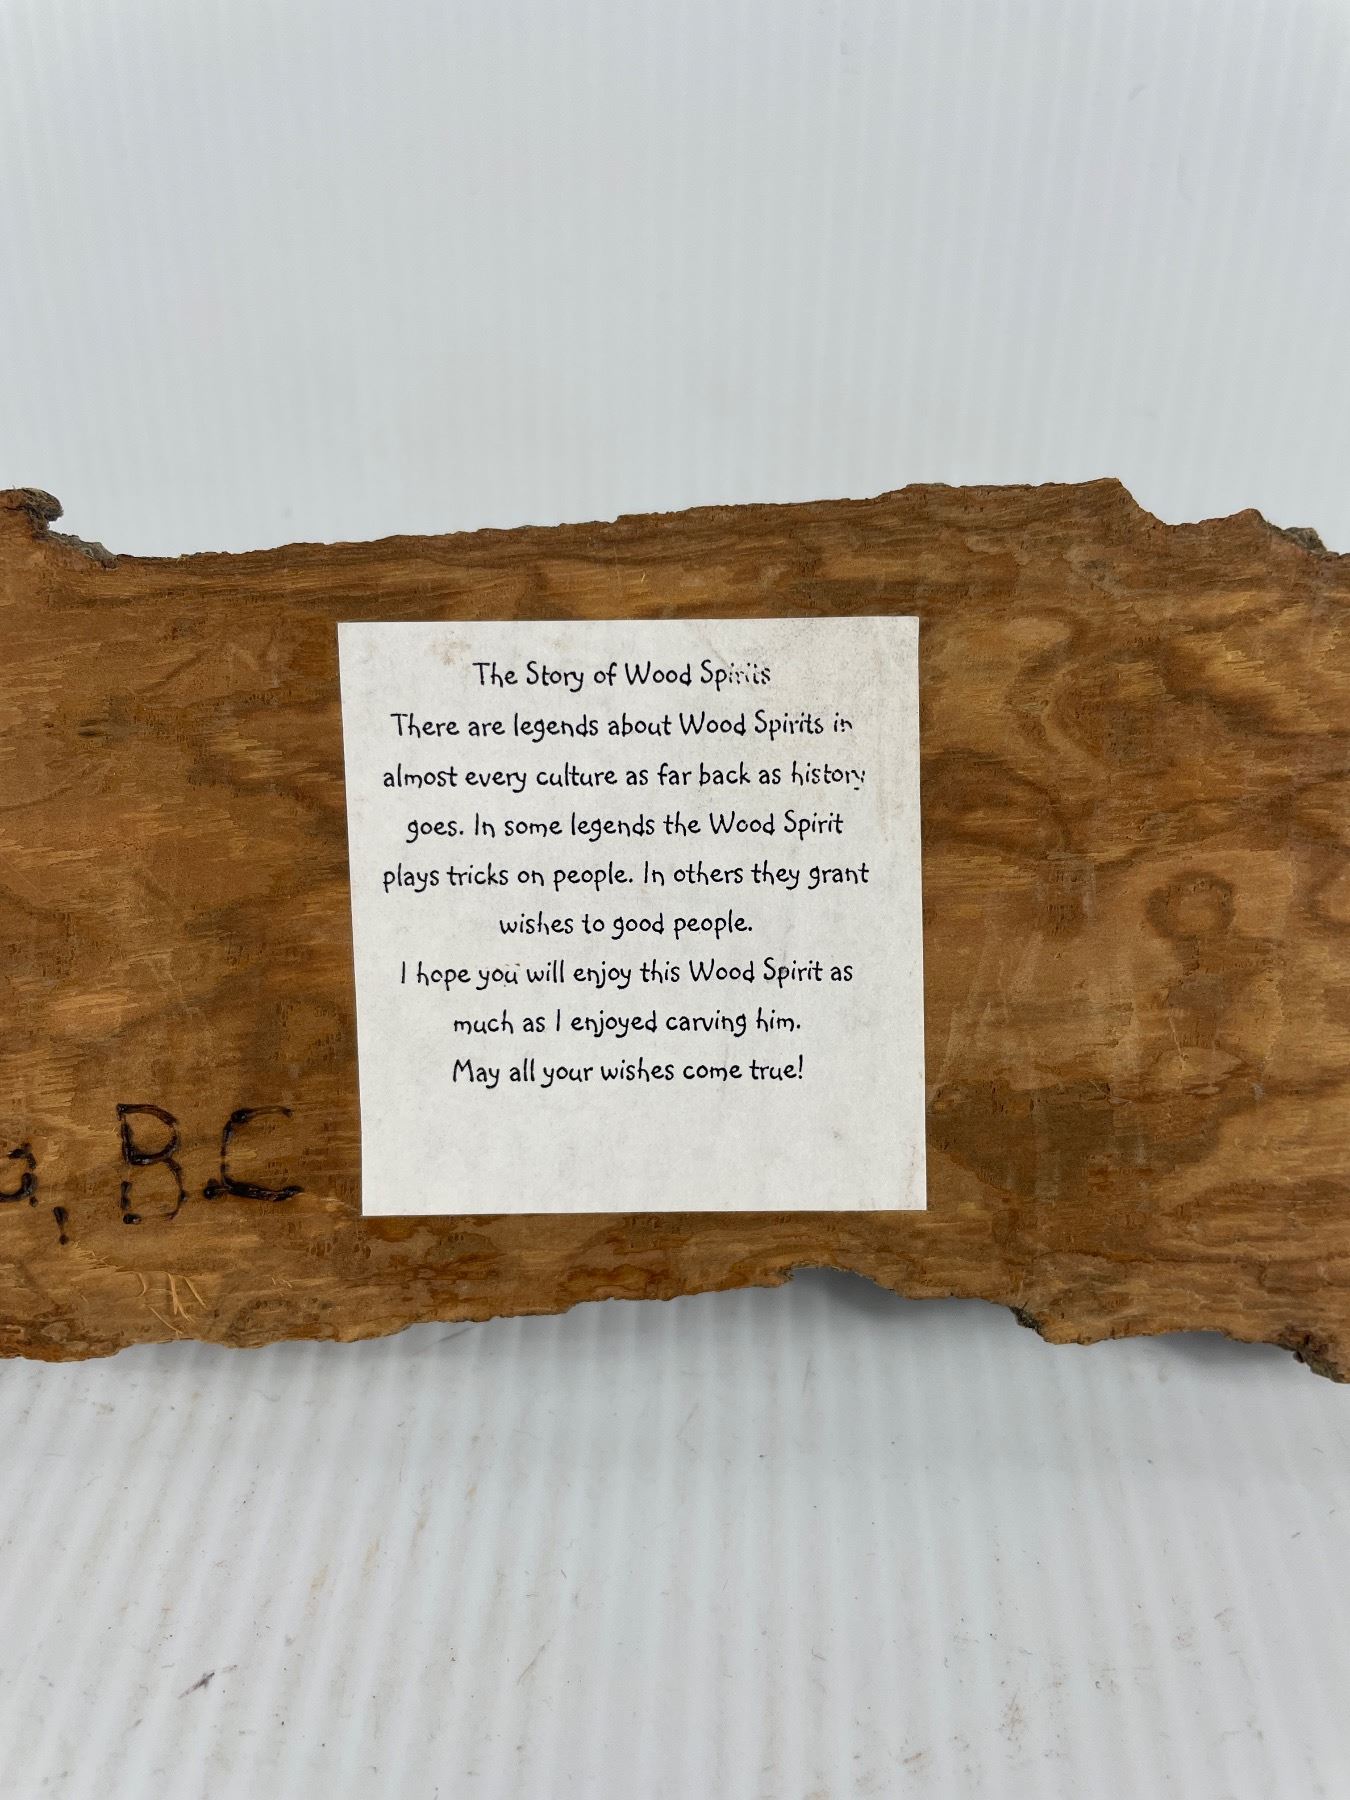 The Story of Wood Spirits
There are legends about Wood Spirits in
almost every culture as far back as history
goes. In some legends the Wood Spirit
plays tricks on people. In others they grant
wishes to good people.
I hope you will enjoy this Wood Spirit as
much as I enjoyed carving him.
May all your wishes come true!
a, BC